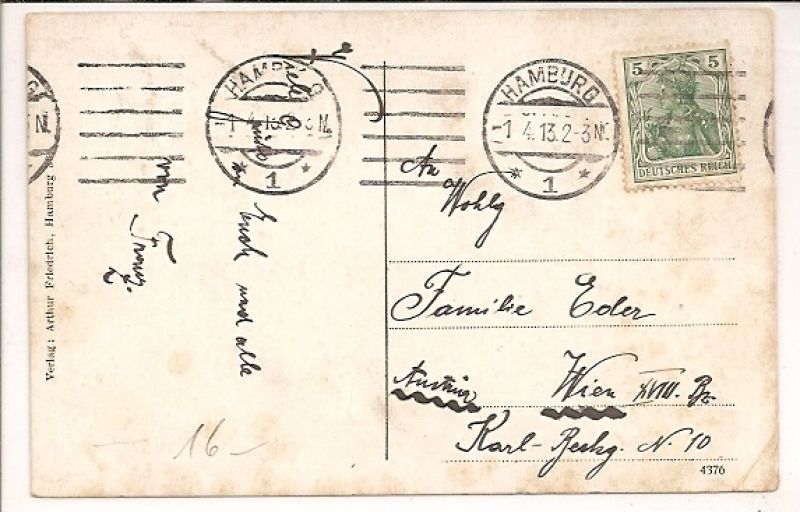 HAMBURG
1 4.13.2-3N.
1
HAMBURG
1 4.13.2-3N.
1
5 5
DEUTSCHES REICH
Verlag: Arthur Friedrich, Hamburg
Euch und alle
von Franz.
16-
An
Wohlg
Familie Eder
Austria Wien XVIII. Bz.
Karl-Beckg. N. 10
4376